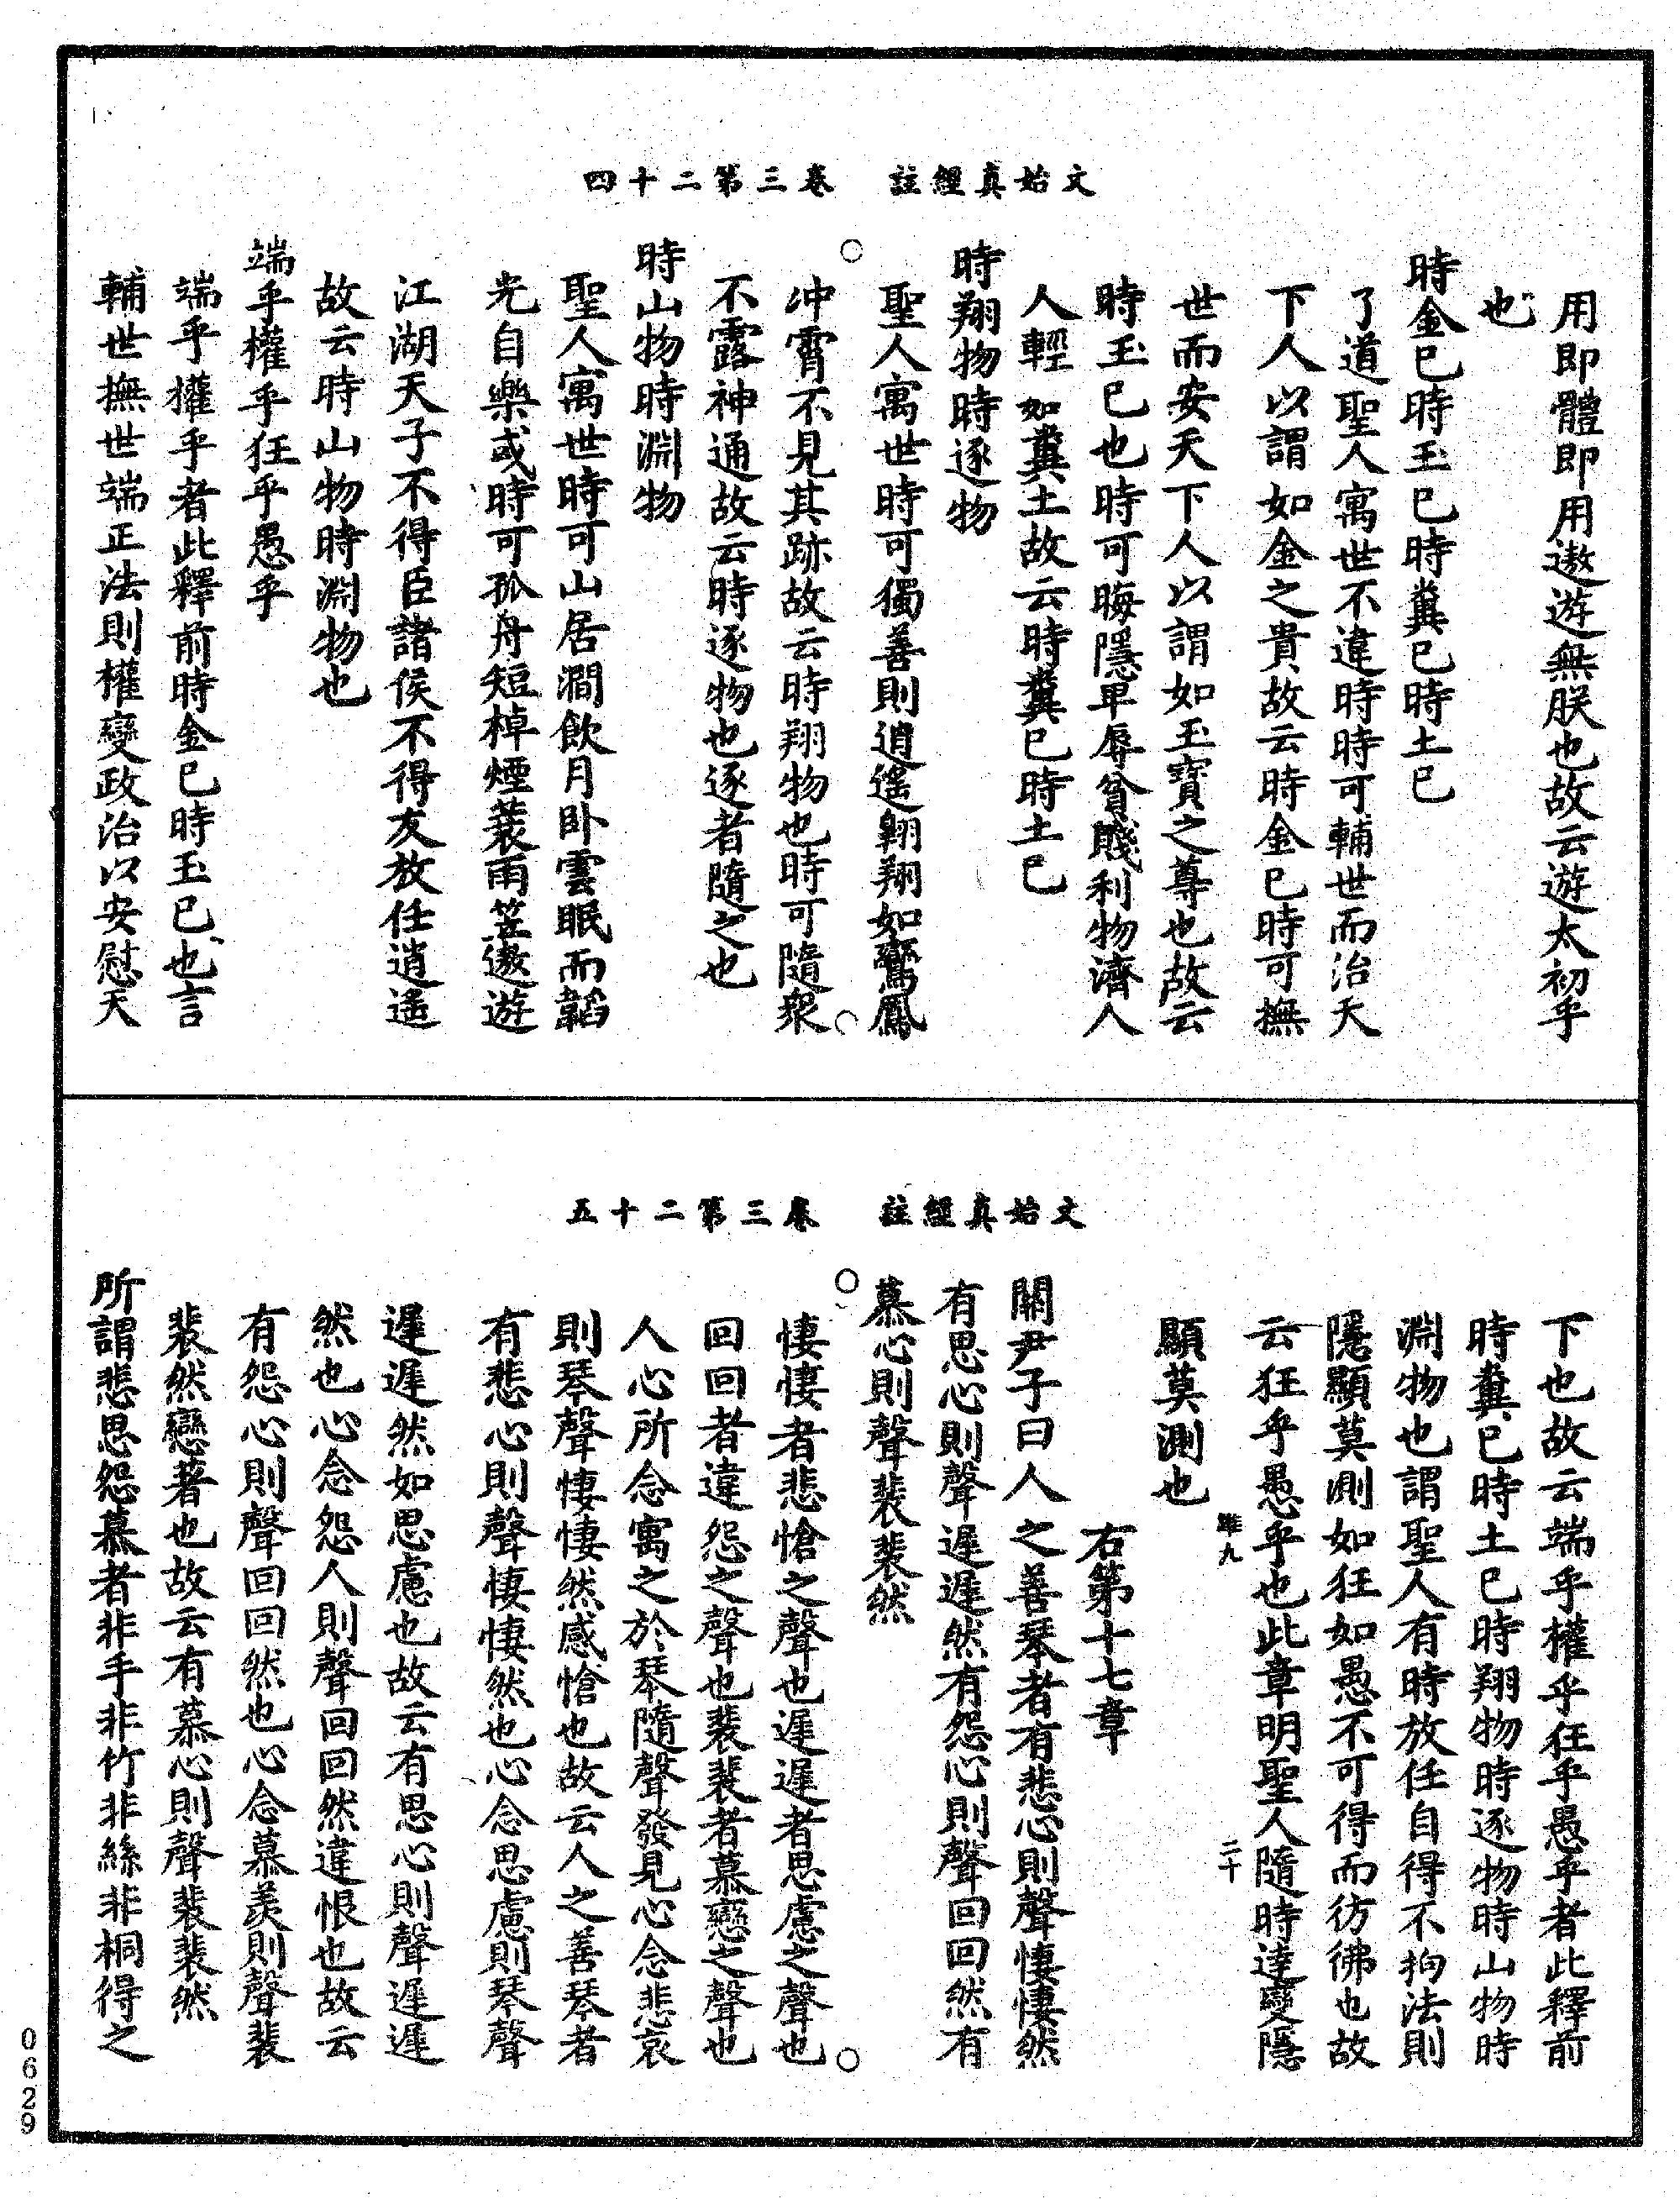 文始真經註　卷三第二十四
用即體即用遨遊無朕也故云遊太初乎
也
時金已時玉已時糞已時土已
了道聖人寓世不違時時可輔世而治天
下人以謂如金之貴故云時金已時可撫
世而安天下人以謂如玉寶之尊也故云
時玉已也時可晦隱卑辱貧賤利物濟人
人輕如糞土故云時糞已時土已
時翔物時逐物
聖人寓世時可獨善則逍遙翱翔如鸞鳳
冲霄不見其跡故云時翔物也時可隨衆
不露神通故云時逐物也逐者隨之也
時山物時淵物
聖人寓世時可山居澗飲月卧雲眠而韜
光自樂或時可孤舟短棹煙蓑雨笠遨遊
江湖天子不得臣諸侯不得友放任逍遙
故云時山物時淵物也
端乎權乎狂乎愚乎
端乎權乎者此釋前時金已時玉已也言
輔世撫世端正法則權變政治以安慰天
文始真經註　卷三第二十五
下也故云端乎權乎狂乎愚乎者此釋前
時糞已時土已時翔物時逐物時山物時
淵物也謂聖人有時放任自得不拘法則
隱顯莫測如狂如愚不可得而彷彿也故
云狂乎愚乎也此章明聖人隨時達變隱
雖九　二十
顯莫測也
右第十七章
關尹子曰人之善琴者有悲心則聲悽悽然
有思心則聲遲遲然有怨心則聲回回然有
慕心則聲裴裴然
悽悽者悲愴之聲也遲遲者思慮之聲也
回回者違怨之聲也裴裴者慕戀之聲也
人心所念寓之於琴隨聲發見心念悲哀
則琴聲悽悽然感愴也故云人之善琴者
有悲心則聲悽悽然也心念思慮則琴聲
遲遲然如思慮也故云有思心則聲遲遲
然也心念怨人則聲回回然違恨也故云
有怨心則聲回回然也心念慕羨則聲裴
裴然戀著也故云有慕心則聲裴裴然
所謂悲思怨慕者非手非竹非絲非桐得之
0629